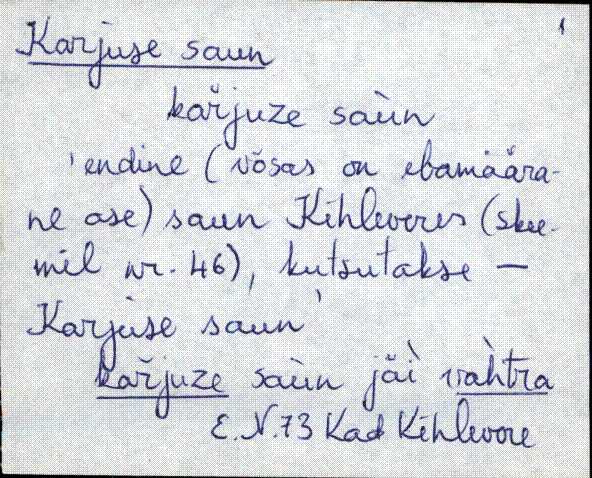 1
Karjuse saun
kařjuze saùn
'endine (võsas on ebamäära-
ne ase) saun Kihleveres (skee-
mil nr. 46), kutsutakse —
Karjuse saun'
kařjuze saùn jäi vahtra
E.N.73 Kad Kihlevere